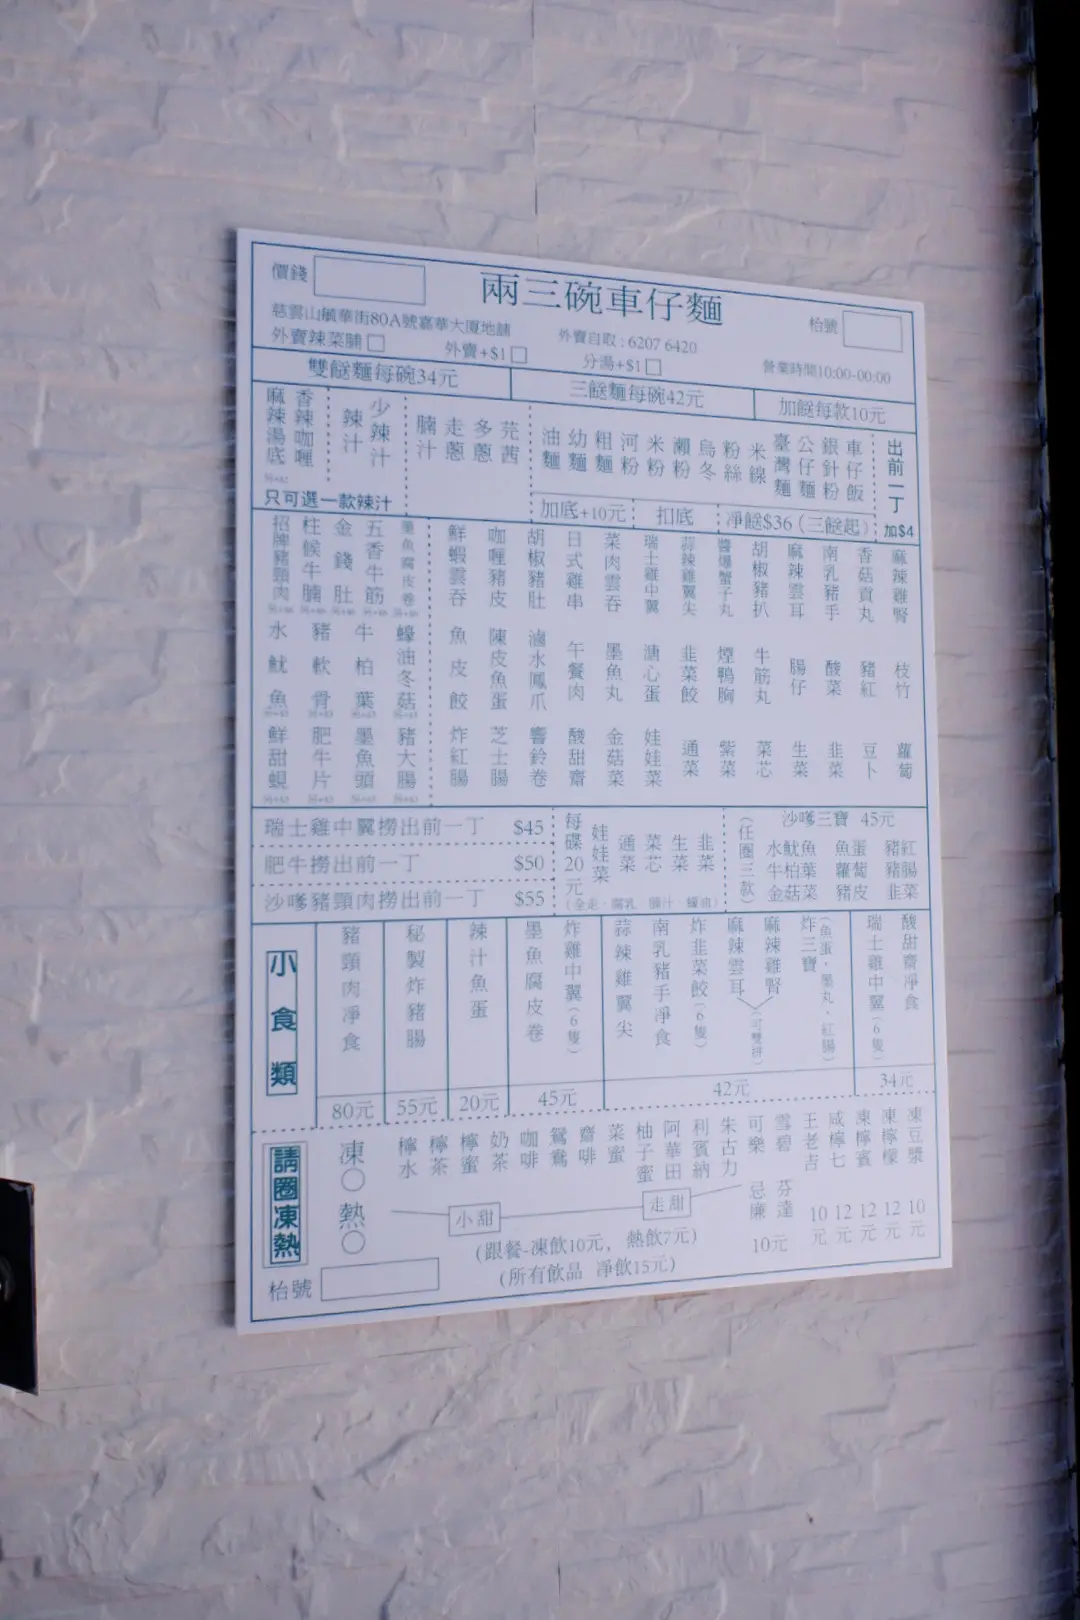 價錢
兩三碗車仔麵
枱號
慈雲山毓華街80A號嘉華大廈地舖
外賣自取：6207 6420
外賣辣菜脯
外賣+$1
分湯+$1
營業時間10:00-00:00
雙餸麵每碗34元
三餸麵每碗42元
加餸每款10元
麻辣湯底
香辣咖喱
辣汁
少辣汁
腩汁
走蔥
多蔥
芫茜
油麵
幼麵
粗麵
河粉
米粉
瀨粉
烏冬
粉絲
米線
臺灣麵
公仔麵
銀針粉
車仔飯
出前一丁
加$4
只可選一款辣汁
加底+10元
扣底
凈餸$36（三餸起）
招牌豬頸肉
柱候牛腩
金錢肚
五香牛筋
墨魚腐皮卷
鮮蝦雲吞
咖喱豬皮
胡椒豬肚
日式雞串
菜肉雲吞
瑞士雞中翼
蒜辣雞翼尖
醬爆蟹子丸
胡椒豬扒
麻辣雲耳
南乳豬手
香菇貢丸
麻辣雞腎
水魷魚
豬軟骨
牛柏葉
蠔油冬菇
魚皮餃
陳皮魚蛋
滷水鳳爪
午餐肉
墨魚丸
溏心蛋
韭菜餃
煙鴨胸
牛筋丸
腸仔
酸菜
豬紅
枝竹
鮮甜蜆
肥牛片
墨魚頭
豬大腸
炸紅腸
芝士腸
響鈴卷
酸甜齋
金菇菜
娃娃菜
通菜
紫菜
菜芯
生菜
韭菜
豆卜
蘿蔔
瑞士雞中翼撈出前一丁 $45
肥牛撈出前一丁 $50
沙嗲豬頸肉撈出前一丁 $55
每碟20元
娃娃菜
通菜
菜芯
生菜
韭菜
（全走．腐乳．腩汁．蠔油）
（任圈三款）
沙嗲三寶 45元
水魷魚 魚蛋 豬紅
牛柏葉 蘿蔔 豬腸
金菇菜 豬皮 韭菜
小食類
豬頸肉凈食
80元
秘製炸豬腸
55元
辣汁魚蛋
20元
墨魚腐皮卷
炸雞中翼（6隻）
45元
蒜辣雞翼尖
南乳豬手凈食
炸韭菜餃（6隻）
麻辣雲耳
麻辣雞腎
（可雙拼）
炸三寶
（魚蛋．墨丸．紅腸）
42元
瑞士雞中翼（6隻）
酸甜齋凈食
34元
請圈凍熱
凍○
熱○
檸水
檸茶
檸蜜
奶茶
咖啡
鴛鴦
齋啡
菜蜜
柚子蜜
阿華田
利賓納
朱古力
可樂
雪碧
忌廉
芬達
10元
王老吉
10元
咸檸七
12元
凍檸賓
12元
凍檸檬
12元
凍豆漿
10元
小甜
走甜
（跟餐-凍飲10元，熱飲7元）
（所有飲品 凈飲15元）
枱號